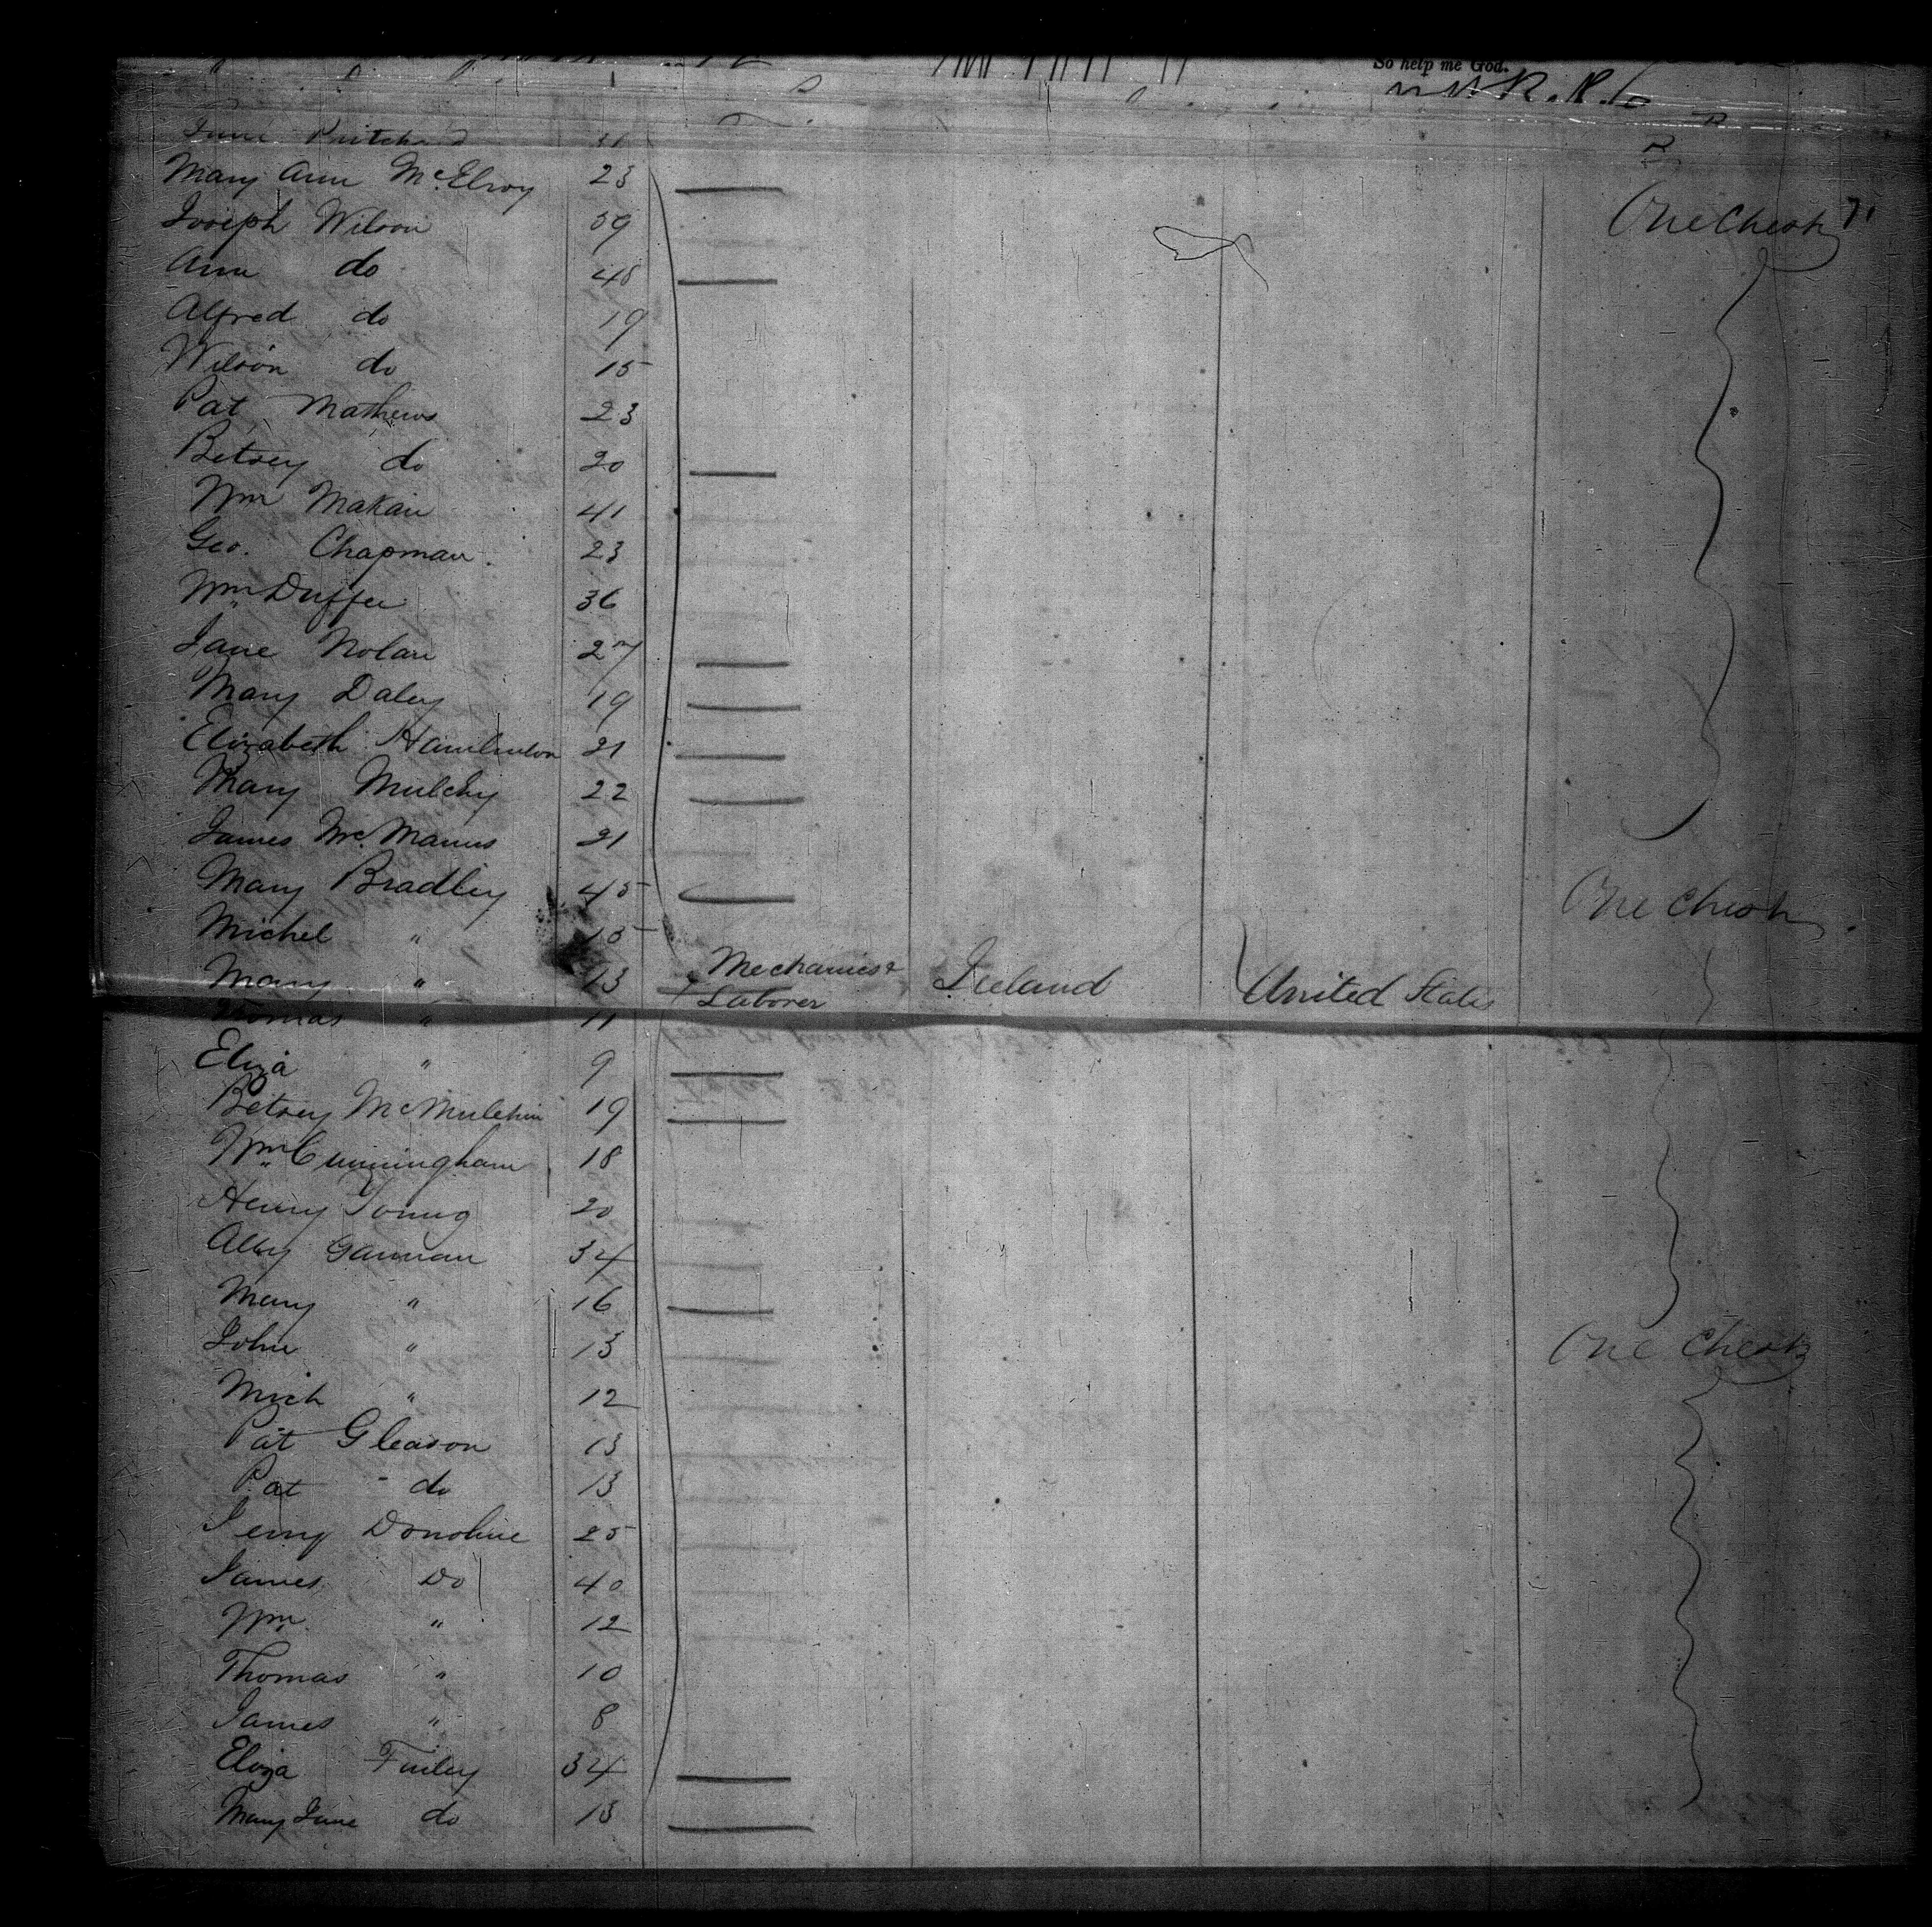 So help me God.
Jane Pritchard 31
Mary Ann McElroy 23
Joseph Wilson 59 One Chest
Ann do 48
Alfred do 19
Wilson do 15
Pat Mathews 23
Betsey do 20
Wm Makan 41
Geo. Chapman 23
Wm Duffee 36
Jane Nolan 27
Mary Daley 19
Elizabeth 21
Mary Mulchy 22
James McManus 21
Mary Bradley 45 One Chest
Michel " 15
Mary " 13 Mechanics & Laborer Ireland United States
Thomas " 11
Eliza " 9
Betsey 19
Wm Cunningham 18
Henry Young 20
Ally Gannan 34
Mary " 16
John " 13 One Chest
Mich " 12
Pat Gleason 13
Pat do 13
Jerry Donohue 25
James Do 40
Wm " 12
Thomas " 10
James " 8
Eliza Finley 34
Mary Jane do 13